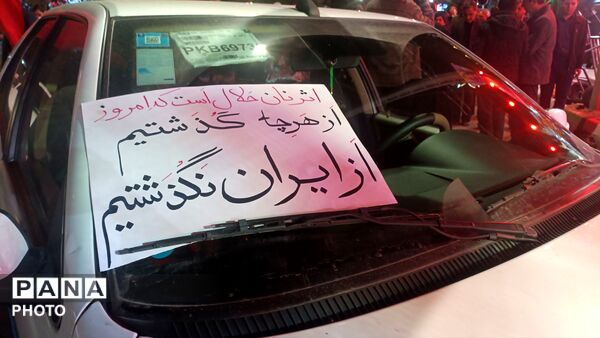 اثرتان حلال است که امروز
از هرچه گذشتیم
از ایران نگذشتیم
PANA
PHOTO